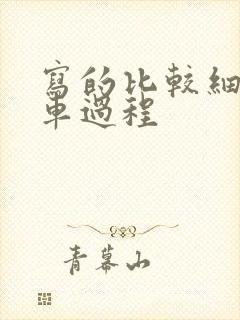 寫的比較細
車過程
青幕山